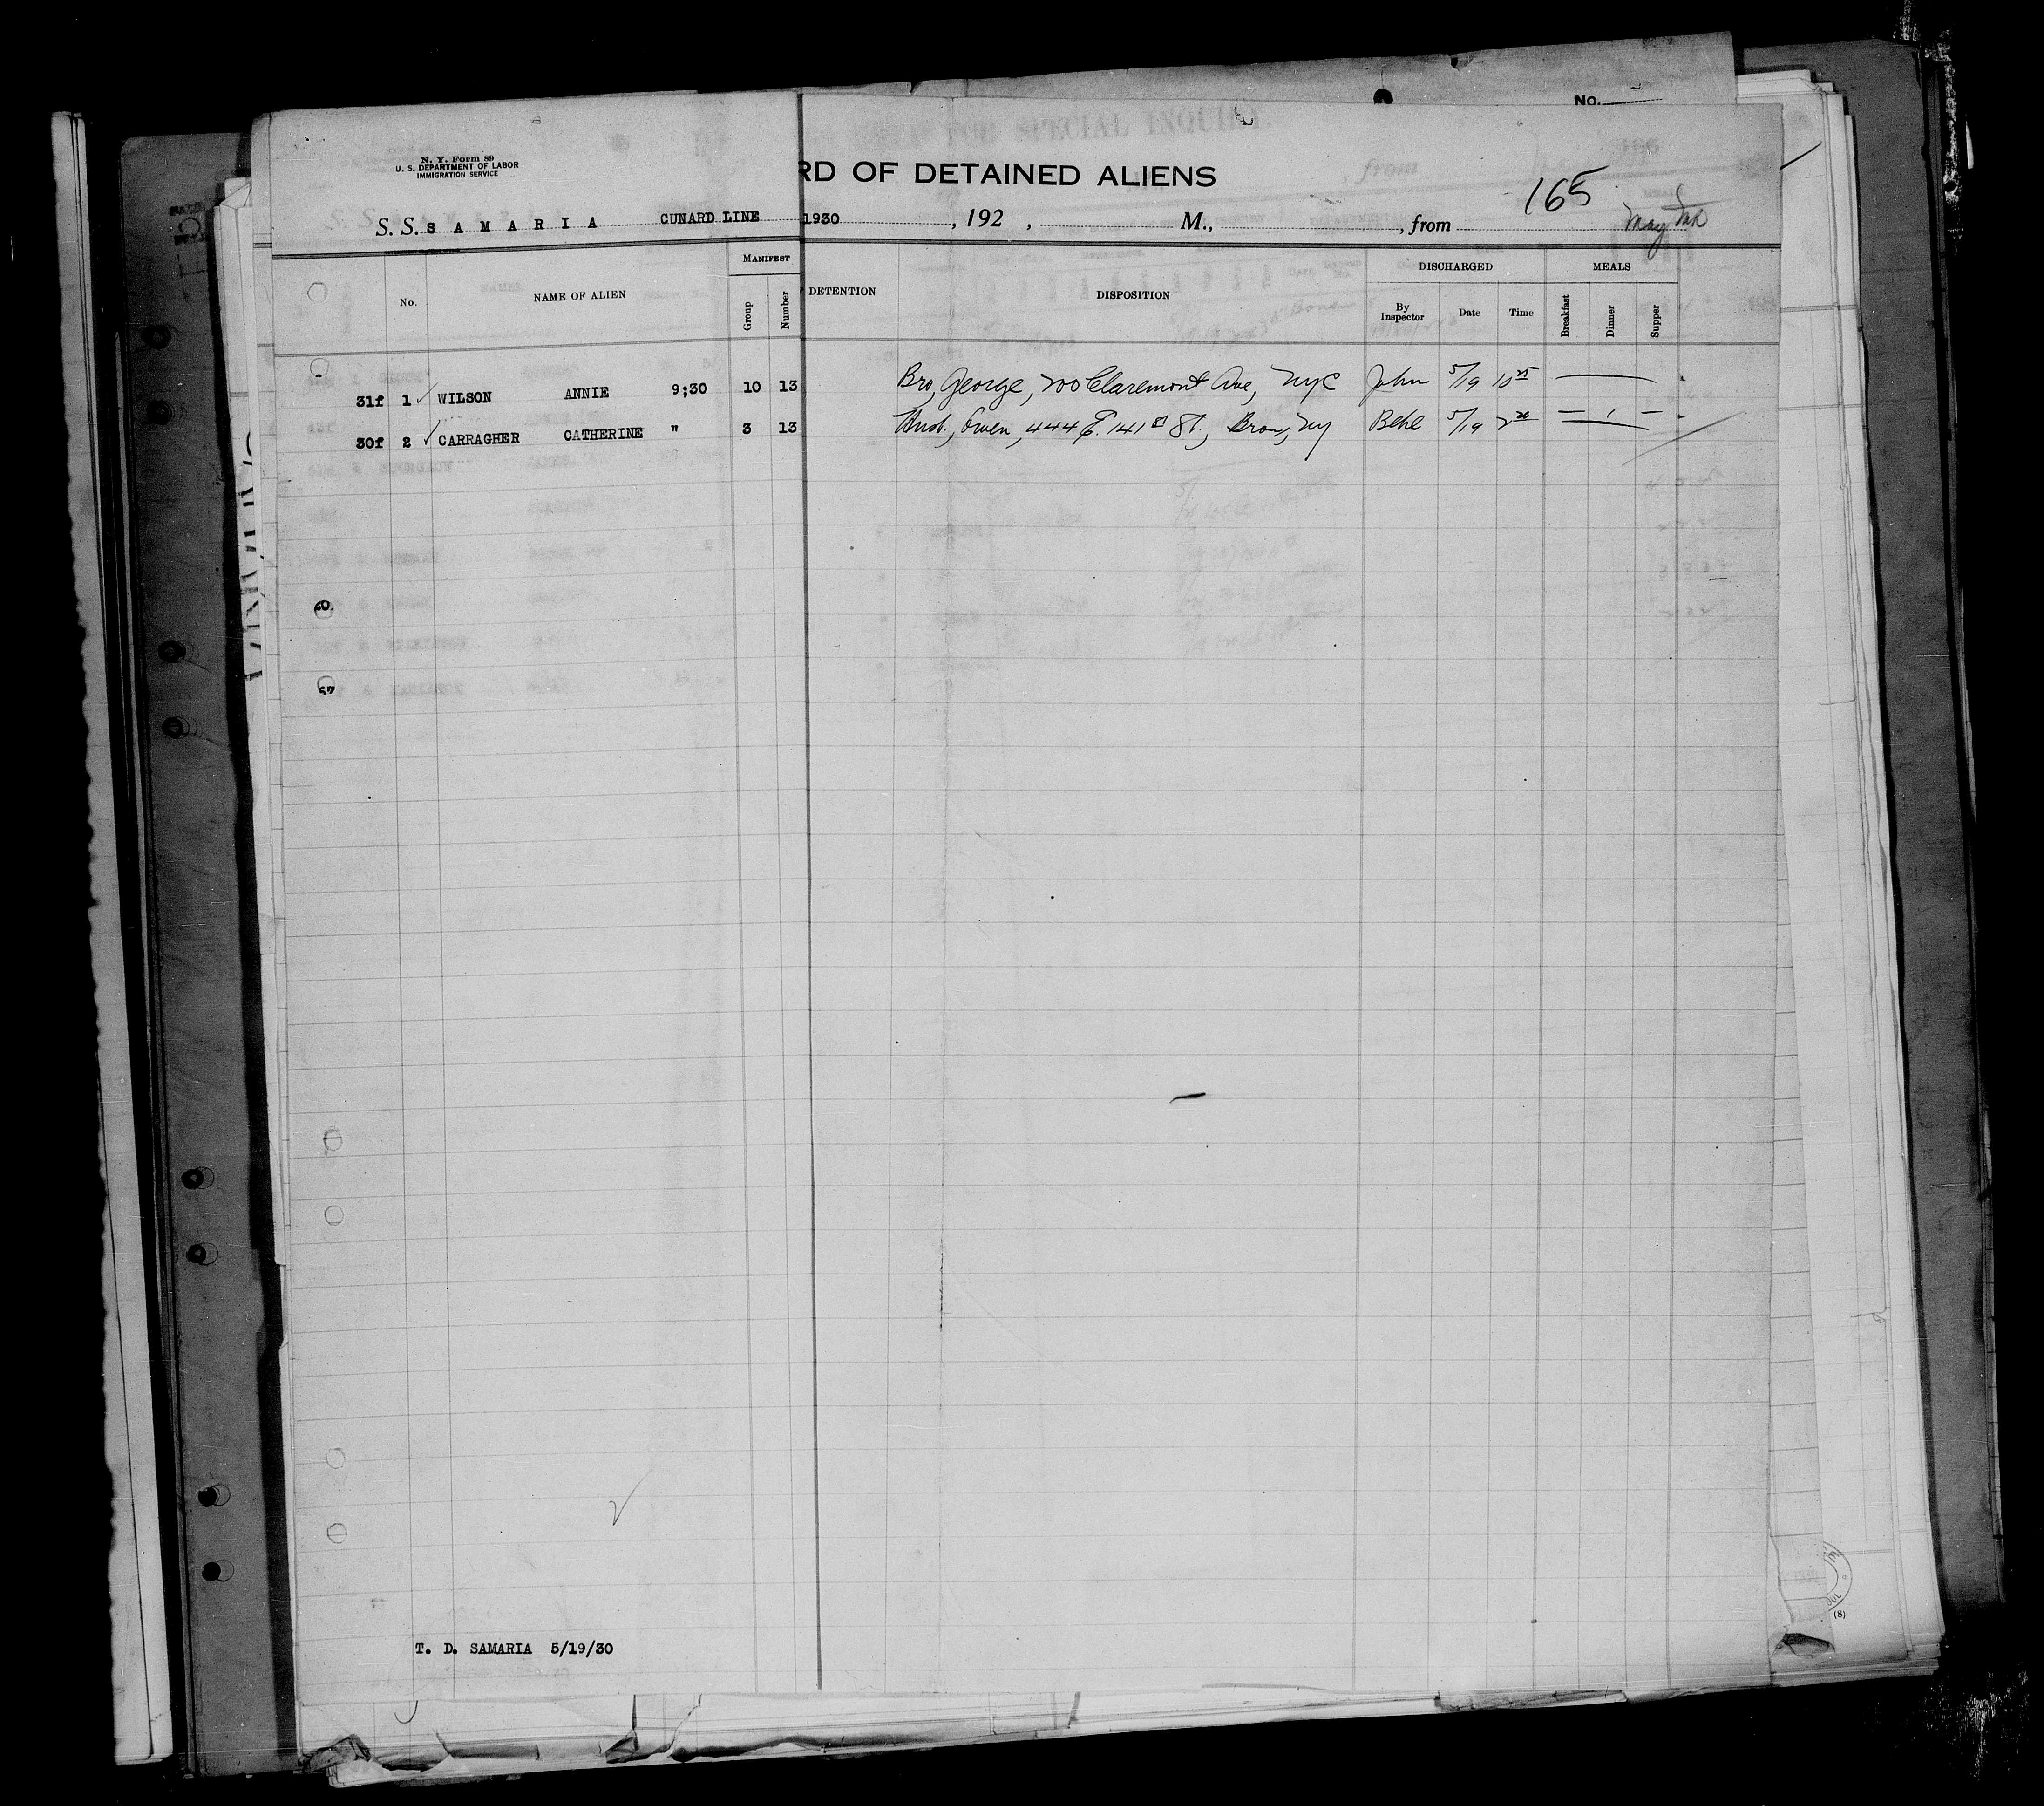 No.
N. Y. Form 89
U. S. DEPARTMENT OF LABOR
IMMIGRATION SERVICE
FOR SPECIAL INQUIRY
RD OF DETAINED ALIENS
165
S. S. S A M A R I A CUNARD LINE 1930 , 192 , M., , from
May
No. NAME OF ALIEN MANIFEST Group Number DETENTION DISPOSITION DISCHARGED By Inspector Date Time MEALS Breakfast Dinner Supper
31f 1 WILSON ANNIE 9;30 10 13 Bro, George, 700 Claremont Ave, NYC John 5/19 10 25
30f 2 CARRAGHER CATHERINE " 3 13 Husb., Owen, 444 E. 141 st St., Bronx, NY 5/19 — 1 —
T. D. SAMARIA 5/19/30
(8)